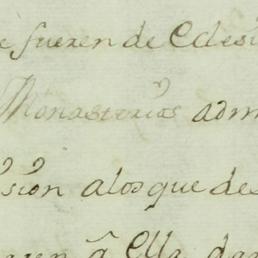 e fueren de Eclesi
Monasterios adm
sion alos que des
en â Ella da